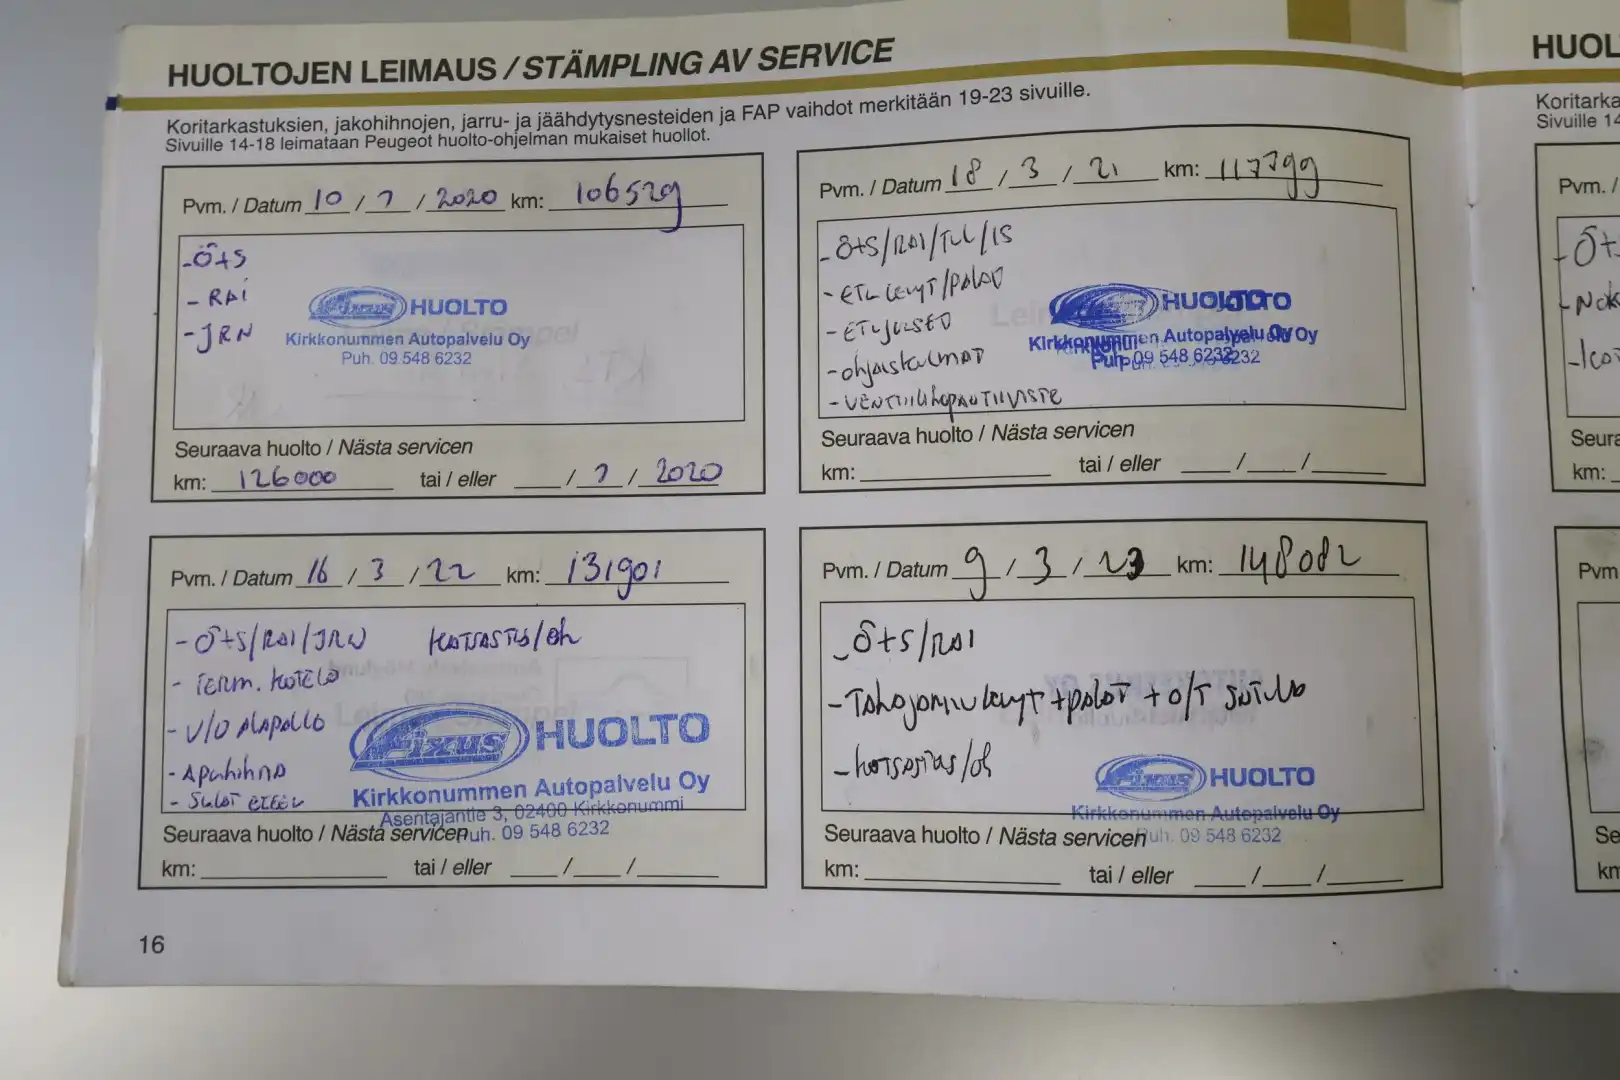 HUOLTOJEN LEIMAUS / STÄMPLING AV SERVICE
Koritarkastuksien, jakohihnojen, jarru- ja jäähdytysnesteiden ja FAP vaihdot merkitään 19-23 sivuille.
Sivuille 14-18 leimataan Peugeot huolto-ohjelman mukaiset huollot.
Pvm. / Datum 10 / 7 / 2020 km: 106529
-Ö+S
- RAI
- JRN
Fixus HUOLTO
Kirkkonummen Autopalvelu Oy
Puh. 09 548 6232
Seuraava huolto / Nästa servicen
km: 126000 tai / eller / 7 / 2020
Pvm. / Datum 18 / 3 / 21 km: 117799
- Ö+S/RAI/TUL/IS
- ETU LEVYT/PALAT
- ohjauskulmat
Fixus HUOLTO
Kirkkonummen Autopalvelu Oy
Puh. 09 548 6232
Seuraava huolto / Nästa servicen
km: tai / eller / /
Pvm. / Datum 16 / 3 / 22 km: 131901
- Ö+S/RAI/JRN KATSASTUS/Ok
- TERM. KOTELO
- V/O ALAPALLO
- Apuhihna
Fixus HUOLTO
Kirkkonummen Autopalvelu Oy
Asentajantie 3, 02400 Kirkkonummi
Puh. 09 548 6232
Seuraava huolto / Nästa servicen
km: tai / eller / /
Pvm. / Datum 9 / 3 / 23 km: 148082
- Ö+S/RAI
- Takajarrulevyt + palat + O/T
- katsastus/ok
Fixus HUOLTO
Kirkkonummen Autopalvelu Oy
Puh. 09 548 6232
Seuraava huolto / Nästa servicen
km: tai / eller / /
16
HUOL
Koritarka
Sivuille 14
Pvm. /
Seura
km:
Pvm
Se
km